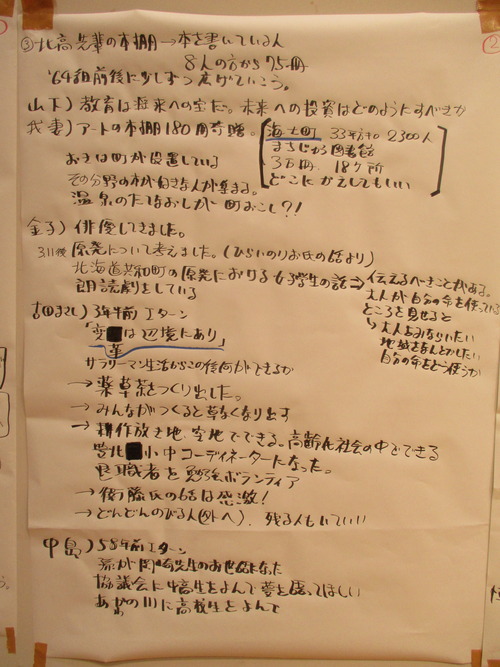 ③北高先輩の本棚→本を書いている人
8人の方から75冊
'64組前後に少しずつ広げていこう。
山下)教育は将来への宝だ。未来への投資はどのようにすべきか
我妻)アートの本棚180冊寄贈。
海士町 33平方キロ 2300人
まちじゅう図書館
3万冊、18ヶ所
どこにかえしてもいい
おきは町が設置している
その分野の本が好きな人が集まる。
温泉のたてなおしが町おこし?!
金子)俳優してきました。
311後 原発について考えました。(ひらいのりお氏の話より)
北海道共和町の原発における女子学生の話⇒伝えるべきことがある。
朗読劇をしている
大人が自分の命を使っている
ところを見せると
↳大人をみならいたい
地域をなんとかしたい
自分の命をどう使うか
吉田まさし)3年前Iターン
「変■は辺境にあり」
革
サラリーマン生活からこの後何ができるか
→薬草茶をつくり出した。
→みんながつくると草なくなり出す
→耕作放き地、空地でできる。高齢化社会の中でできる
豊北■小中コーディネーターになった。
退職者を勉強ボランティア
→衛藤氏の話は感激!
→どんどんのびる人(外へ)、残る人もいていい
中島)55年前Iターン
孫が岡崎先生のお世話になった
協議会に中高生をよんで夢を語ってほしい
の川に高校生をよんで